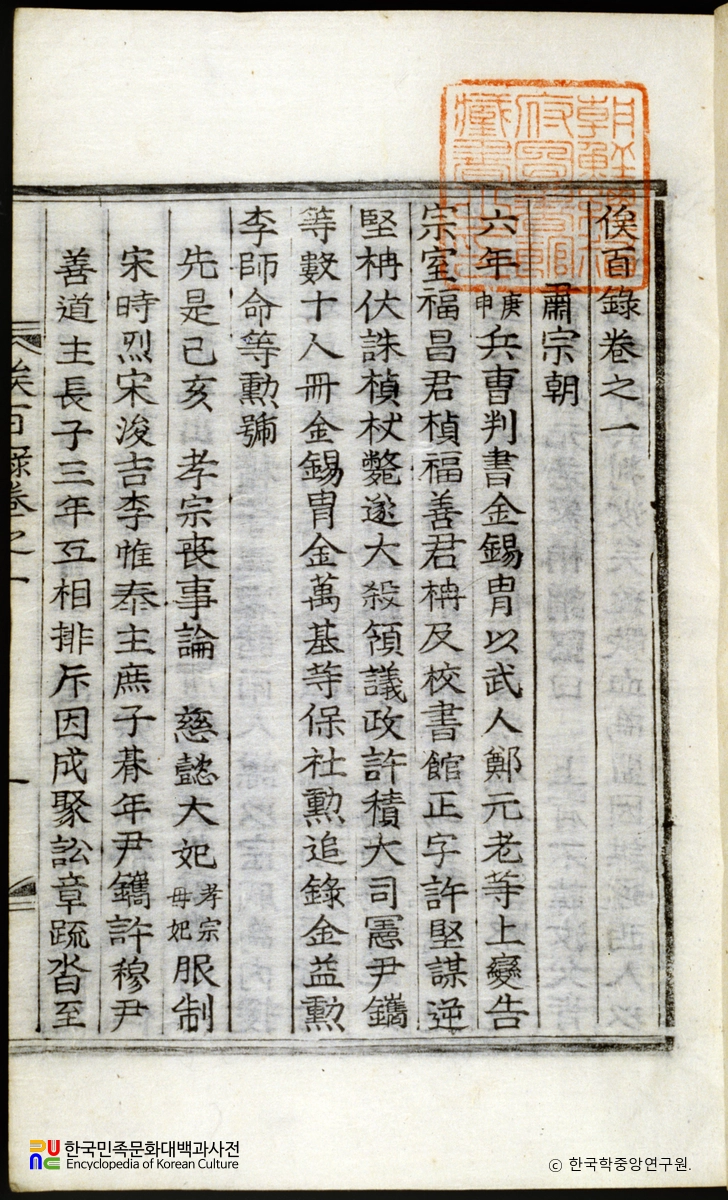 俟百錄卷之一
肅宗朝
六年庚申兵曹判書金錫胄以武人鄭元老等上變告
宗室福昌君楨福善君柟及校書館正字許堅謀逆
堅柟伏誅楨杖斃遂大殺領議政許積大司憲尹鑴
等數十人冊金錫胄金萬基等保社勳追錄金益勳
李師命等勳號
先是己亥 孝宗喪事論 慈懿大妃孝宗母妃服制
宋時烈宋浚吉李惟泰主庶子朞年尹鑴許穆尹
善道主長子三年互相排斥因成聚訟章疏沓至
俟百錄卷之一
一
한국민족문화대백과사전
Encyclopedia of Korean Culture
ⓒ 한국학중앙연구원.